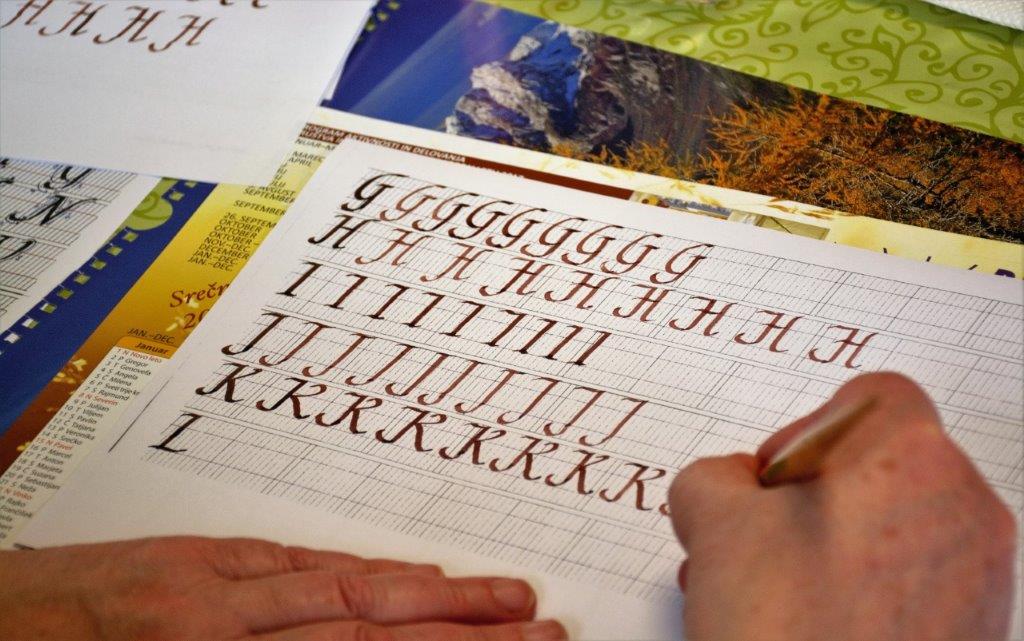 H H H H
N
OGRAM AKTIVNOSTI IN DELOVANJA
MAREC
APRIL
AVGUST
SEPTEMBER
SEPTEMBER
26. SEPTEM
OKTOBER
OKTOBER
OKTOBER
NOV.-DEC.
DECEMBER
JAN.-DEC.
JAN.-DEC.
Srečn
JAN.-DEC.
Januar
1 N Novo leto
2 P Gregor
3 T Genovefa
4 S Angela
5 Č Milena
6 P Sveti trije kr
7 S Rajmund
8 N Severin
9 P Julijan
10 T Viljem
11 S Pavlin
12 Č Tatjana
13 P Veronika
14 S Srečko
15 N Pavel
16 P Marcel
17 T Anton
18 S Marjeta
19 Č Suzana
20 P Sebastijan
21 S Neža
G G G G G G G G G
H H H H H H H H H
I I I I I I I I I
J J J J J J J J J J
K K K K K K K K
L